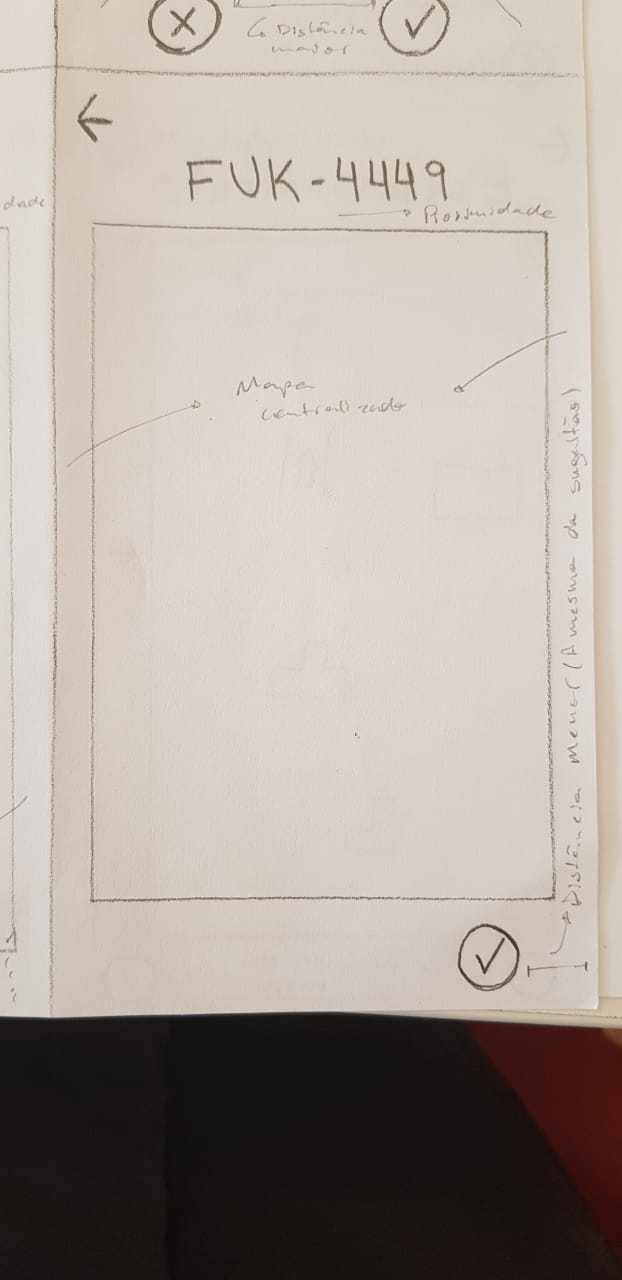 Distância
maior
dade
FUK-4449
Proximidade
Mapa
centralizado
Distância menor (A mesma da sugestão)